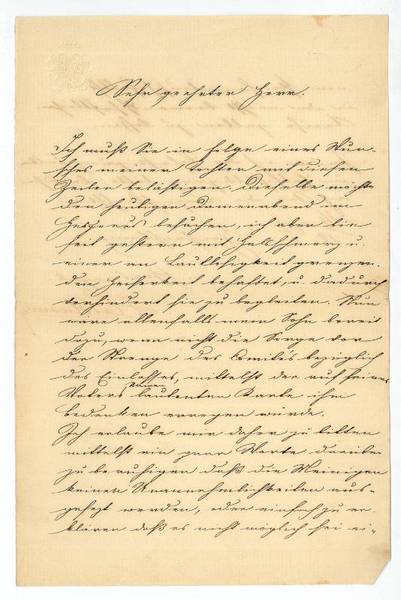 Sehr geehrter Herr.
Ich muß Sie in Folge eines Wun-
sches meiner Tochter mit diesen
Zeilen belästigen. Dieselbe möchte
den heutigen Damenabend im
Hesperus besuchen, ich aber bin
seit gestern mit Halsschmerz u.
einer an Lautlosigkeit grenzen-
den Heiserkeit behaftet, u. dadurch
verhindert sie zu begleiten. Nun
wäre allenfalls mein Sohn bereit
dazu, wenn nicht die Sorge vor
der Strenge des Comité's bezüglich
des Einlasses, mittelst der auf seines
Vaters Namen lautenden Karte ihm
Bedenken erregen würde.
Ich erlaube mir daher zu bitten
mittelst ein paar Worte darüber
zu beruhigen daß die Meinigen
keinen Unannehmlichkeiten aus-
gesetzt werden, oder einfach zu er-
klären daß es nicht möglich sei ei-